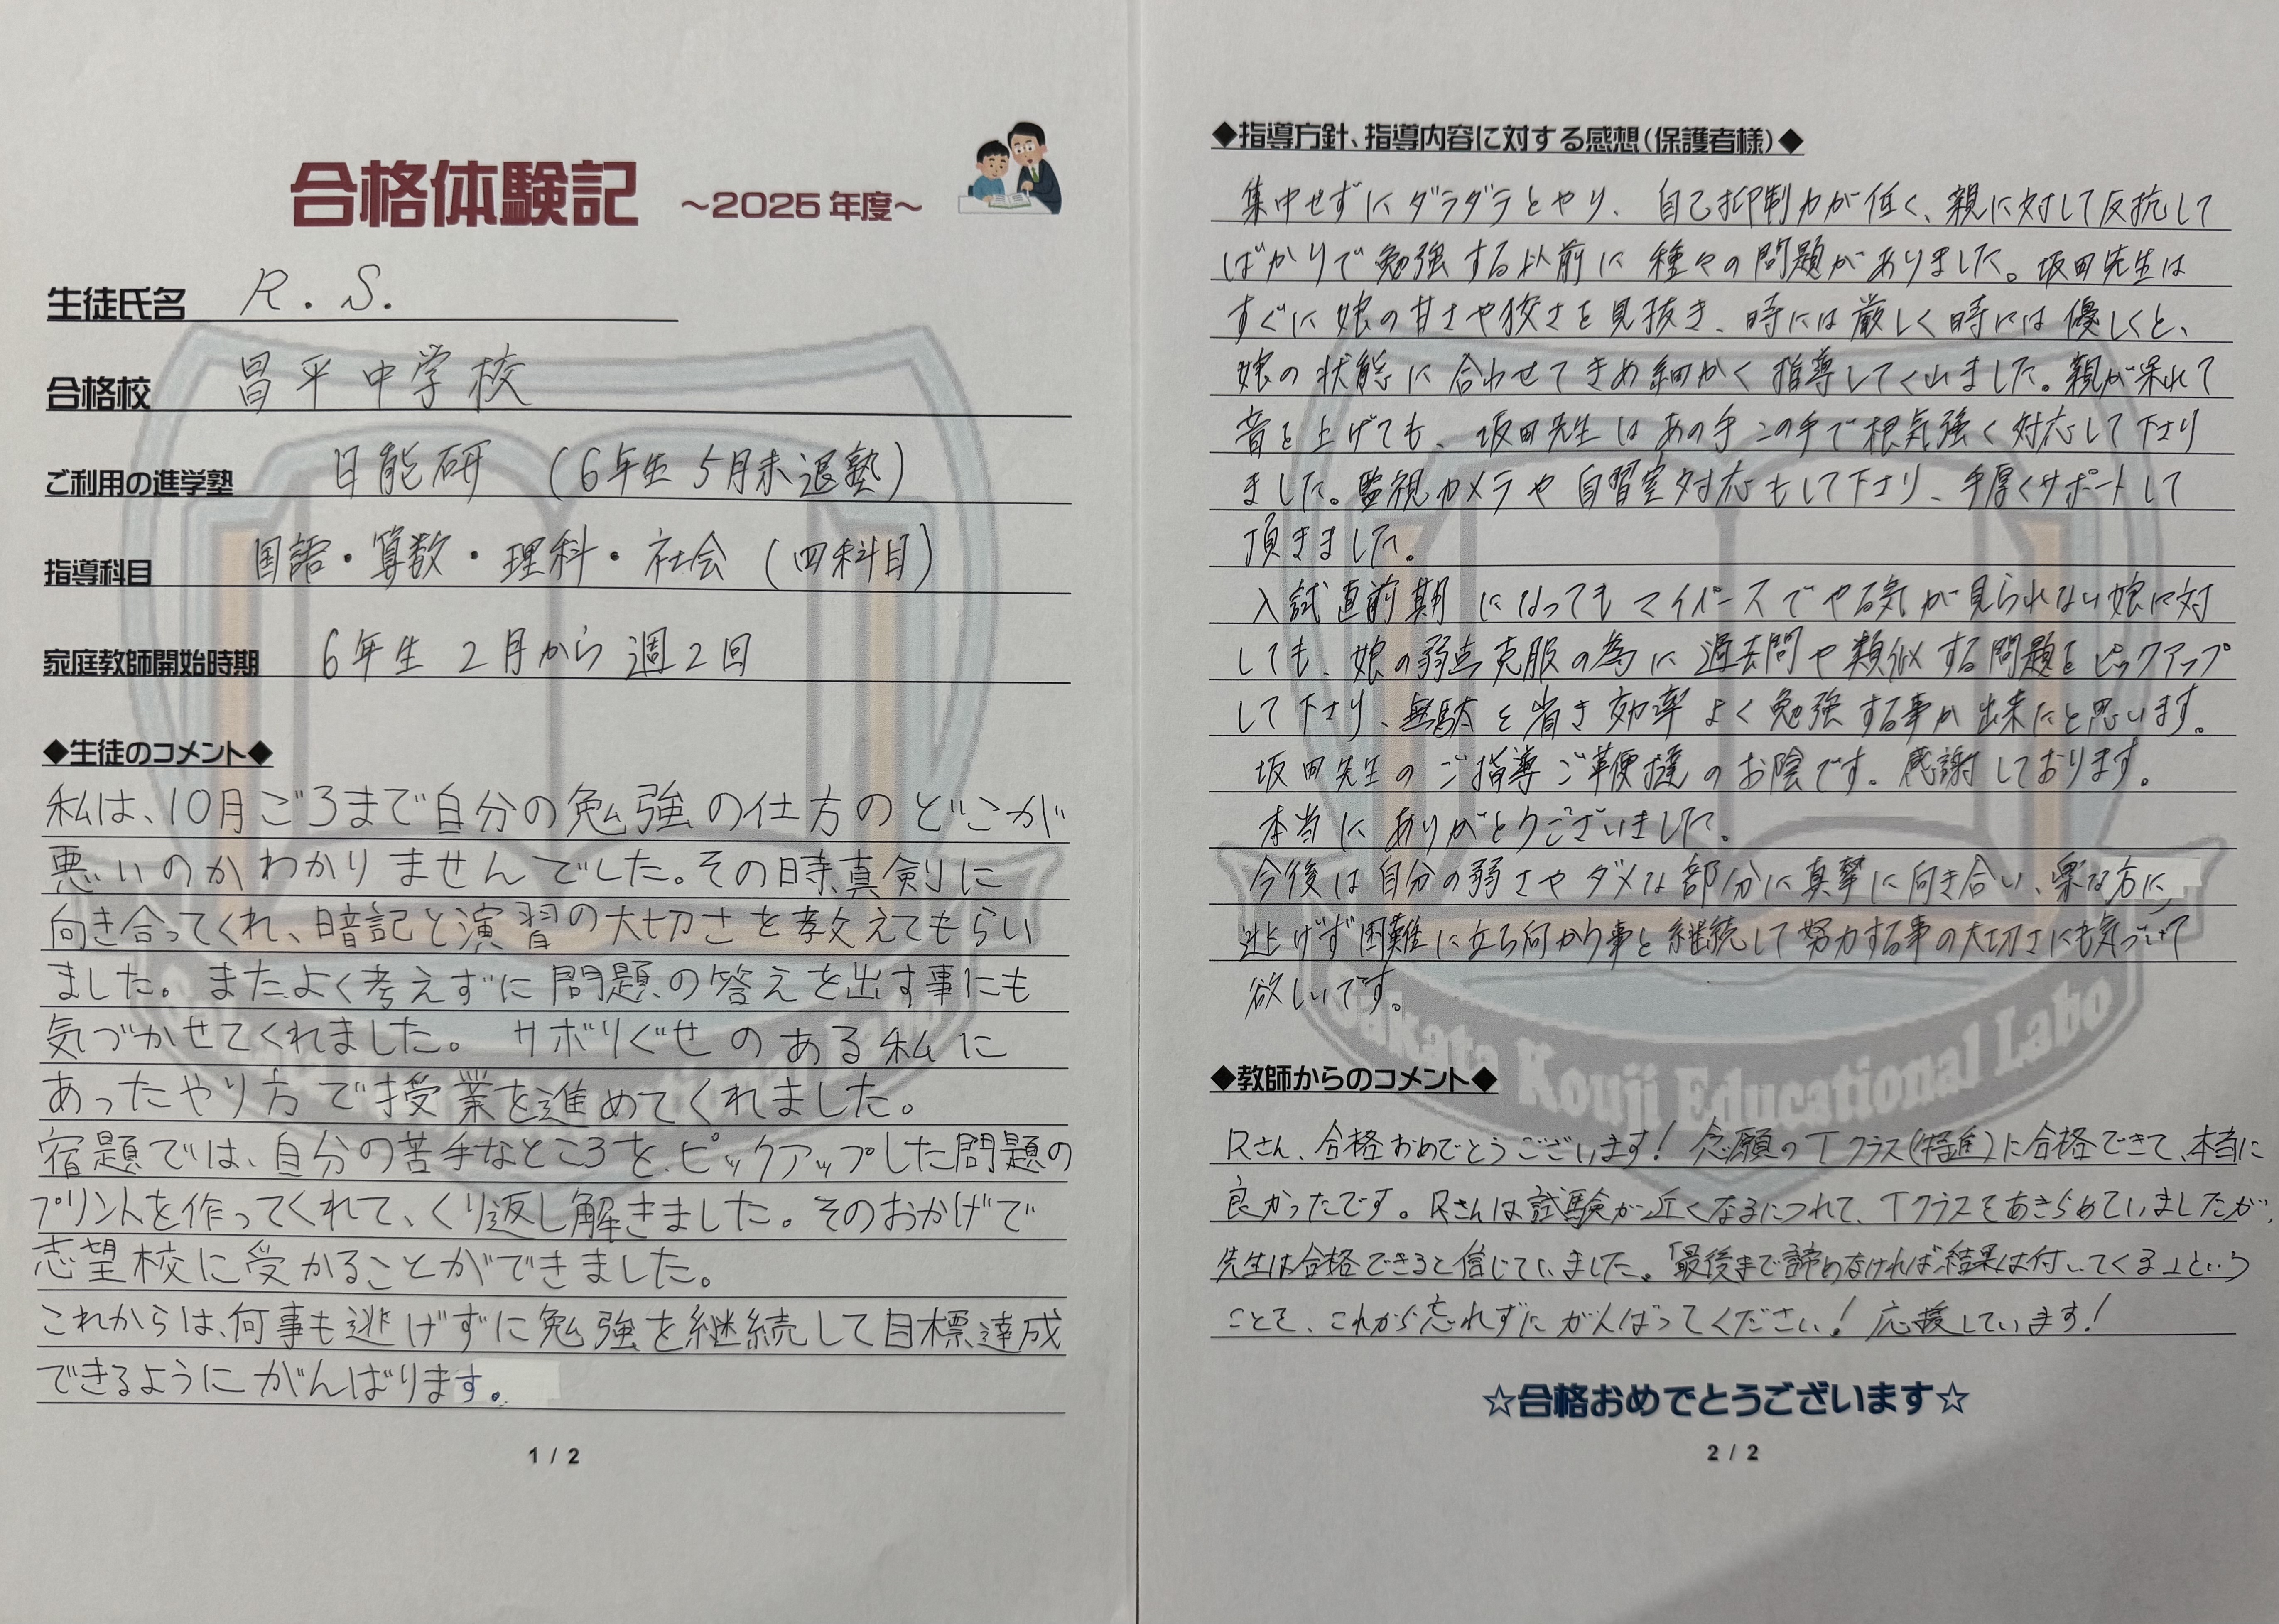 合格体験記 ～2025年度～
生徒氏名 R.S.
合格校 昌平中学校
ご利用の進学塾 日能研 (6年生5月末退塾)
指導科目 国語・算数・理科・社会 (四科目)
家庭教師開始時期 6年生 2月から週2回
◆生徒のコメント◆
私は、10月ごろまで自分の勉強の仕方のどこが
悪いのかわかりませんでした。その時真剣に
向き合ってくれ、暗記と演習の大切さを教えてもらい
ました。またよく考えずに問題の答えを出す事にも
気づかせてくれました。サボりぐせのある私に
あったやり方で授業を進めてくれました。
宿題では、自分の苦手なところを、ピックアップした問題の
プリントを作ってくれて、くり返し解きました。そのおかげで
志望校に受かることができました。
これからは、何事も逃げずに勉強を継続して目標達成
できるようにがんばります。
1 / 2
◆指導方針、指導内容に対する感想(保護者様)◆
集中せずにダラダラとやり、自己抑制力が低く、親に対して反抗して
ばかりで勉強する以前に種々の問題がありました。坂田先生は
すぐに娘の甘さや狡さを見抜き、時には厳しく時には優しくと、
娘の状態に合わせてきめ細かく指導してくれました。親が呆れて
音を上げても、坂田先生はあの手この手で根気強く対応して下さり
ました。監視カメラや自習室対応もして下さり、手厚くサポートして
頂きました。
入試直前期になってもマイペースでやる気が見られない娘に対
しても、娘の弱点克服の為に過去問や類似する問題をピックアップ
して下さり、無駄を省き効率よく勉強する事が出来たと思います。
坂田先生のご指導ご鞭撻のお陰です。感謝しております。
本当にありがとうございました。
今後は自分の弱さやダメな部分に真摯に向き合い、楽な方に
逃げず困難に立ち向かう事と継続して努力する事の大切さにも気づいて
欲しいです。
◆教師からのコメント◆
Rさん、合格おめでとうございます！念願のTクラス(特進)に合格できて、本当に
良かったです。Rさんは試験が近くなるにつれて、Tクラスをあきらめていましたが、
先生は合格できると信じていました。「最後まで諦めなければ結果は付いてくる」という
ことを、これから忘れずにがんばってください！応援しています！
☆合格おめでとうございます☆
2 / 2
Sakata Kouji Educational Labo